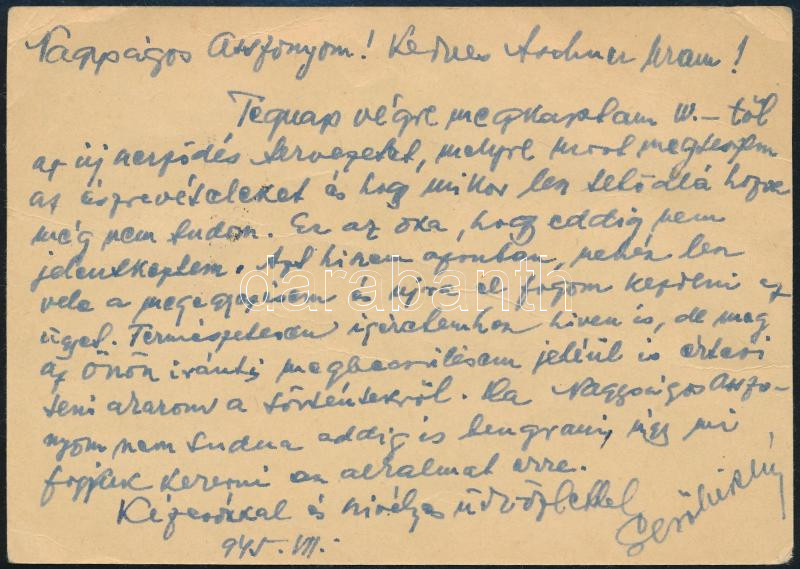 Nagyságos Asszonyom! Kedves Aschner Uram!
Tegnap végre megkaptam W.-től
az új szerződés tervezetet, melyre most megteszem
az észrevételeket és hogy mikor lesz tető alá hozva
még nem tudom. Ez az oka, hogy eddig nem
jelentkeztem. Azt hiszem azonban, nehéz lesz
vele a megegyezésem és újra el fogom kezdeni az
ügyet. Természetesen ígéretemhez híven is, de meg
az Önök iránti megbecsülésem jeléül is értesí
teni akarom a történtekről. Ha Nagyságos Asszo-
nyom nem tudna addig is beugrani, úgy mi
fogjuk keresni az alkalmat erre.
Kézcsókkal és szívélyes üdvözlettel
945. VII.
darabanth